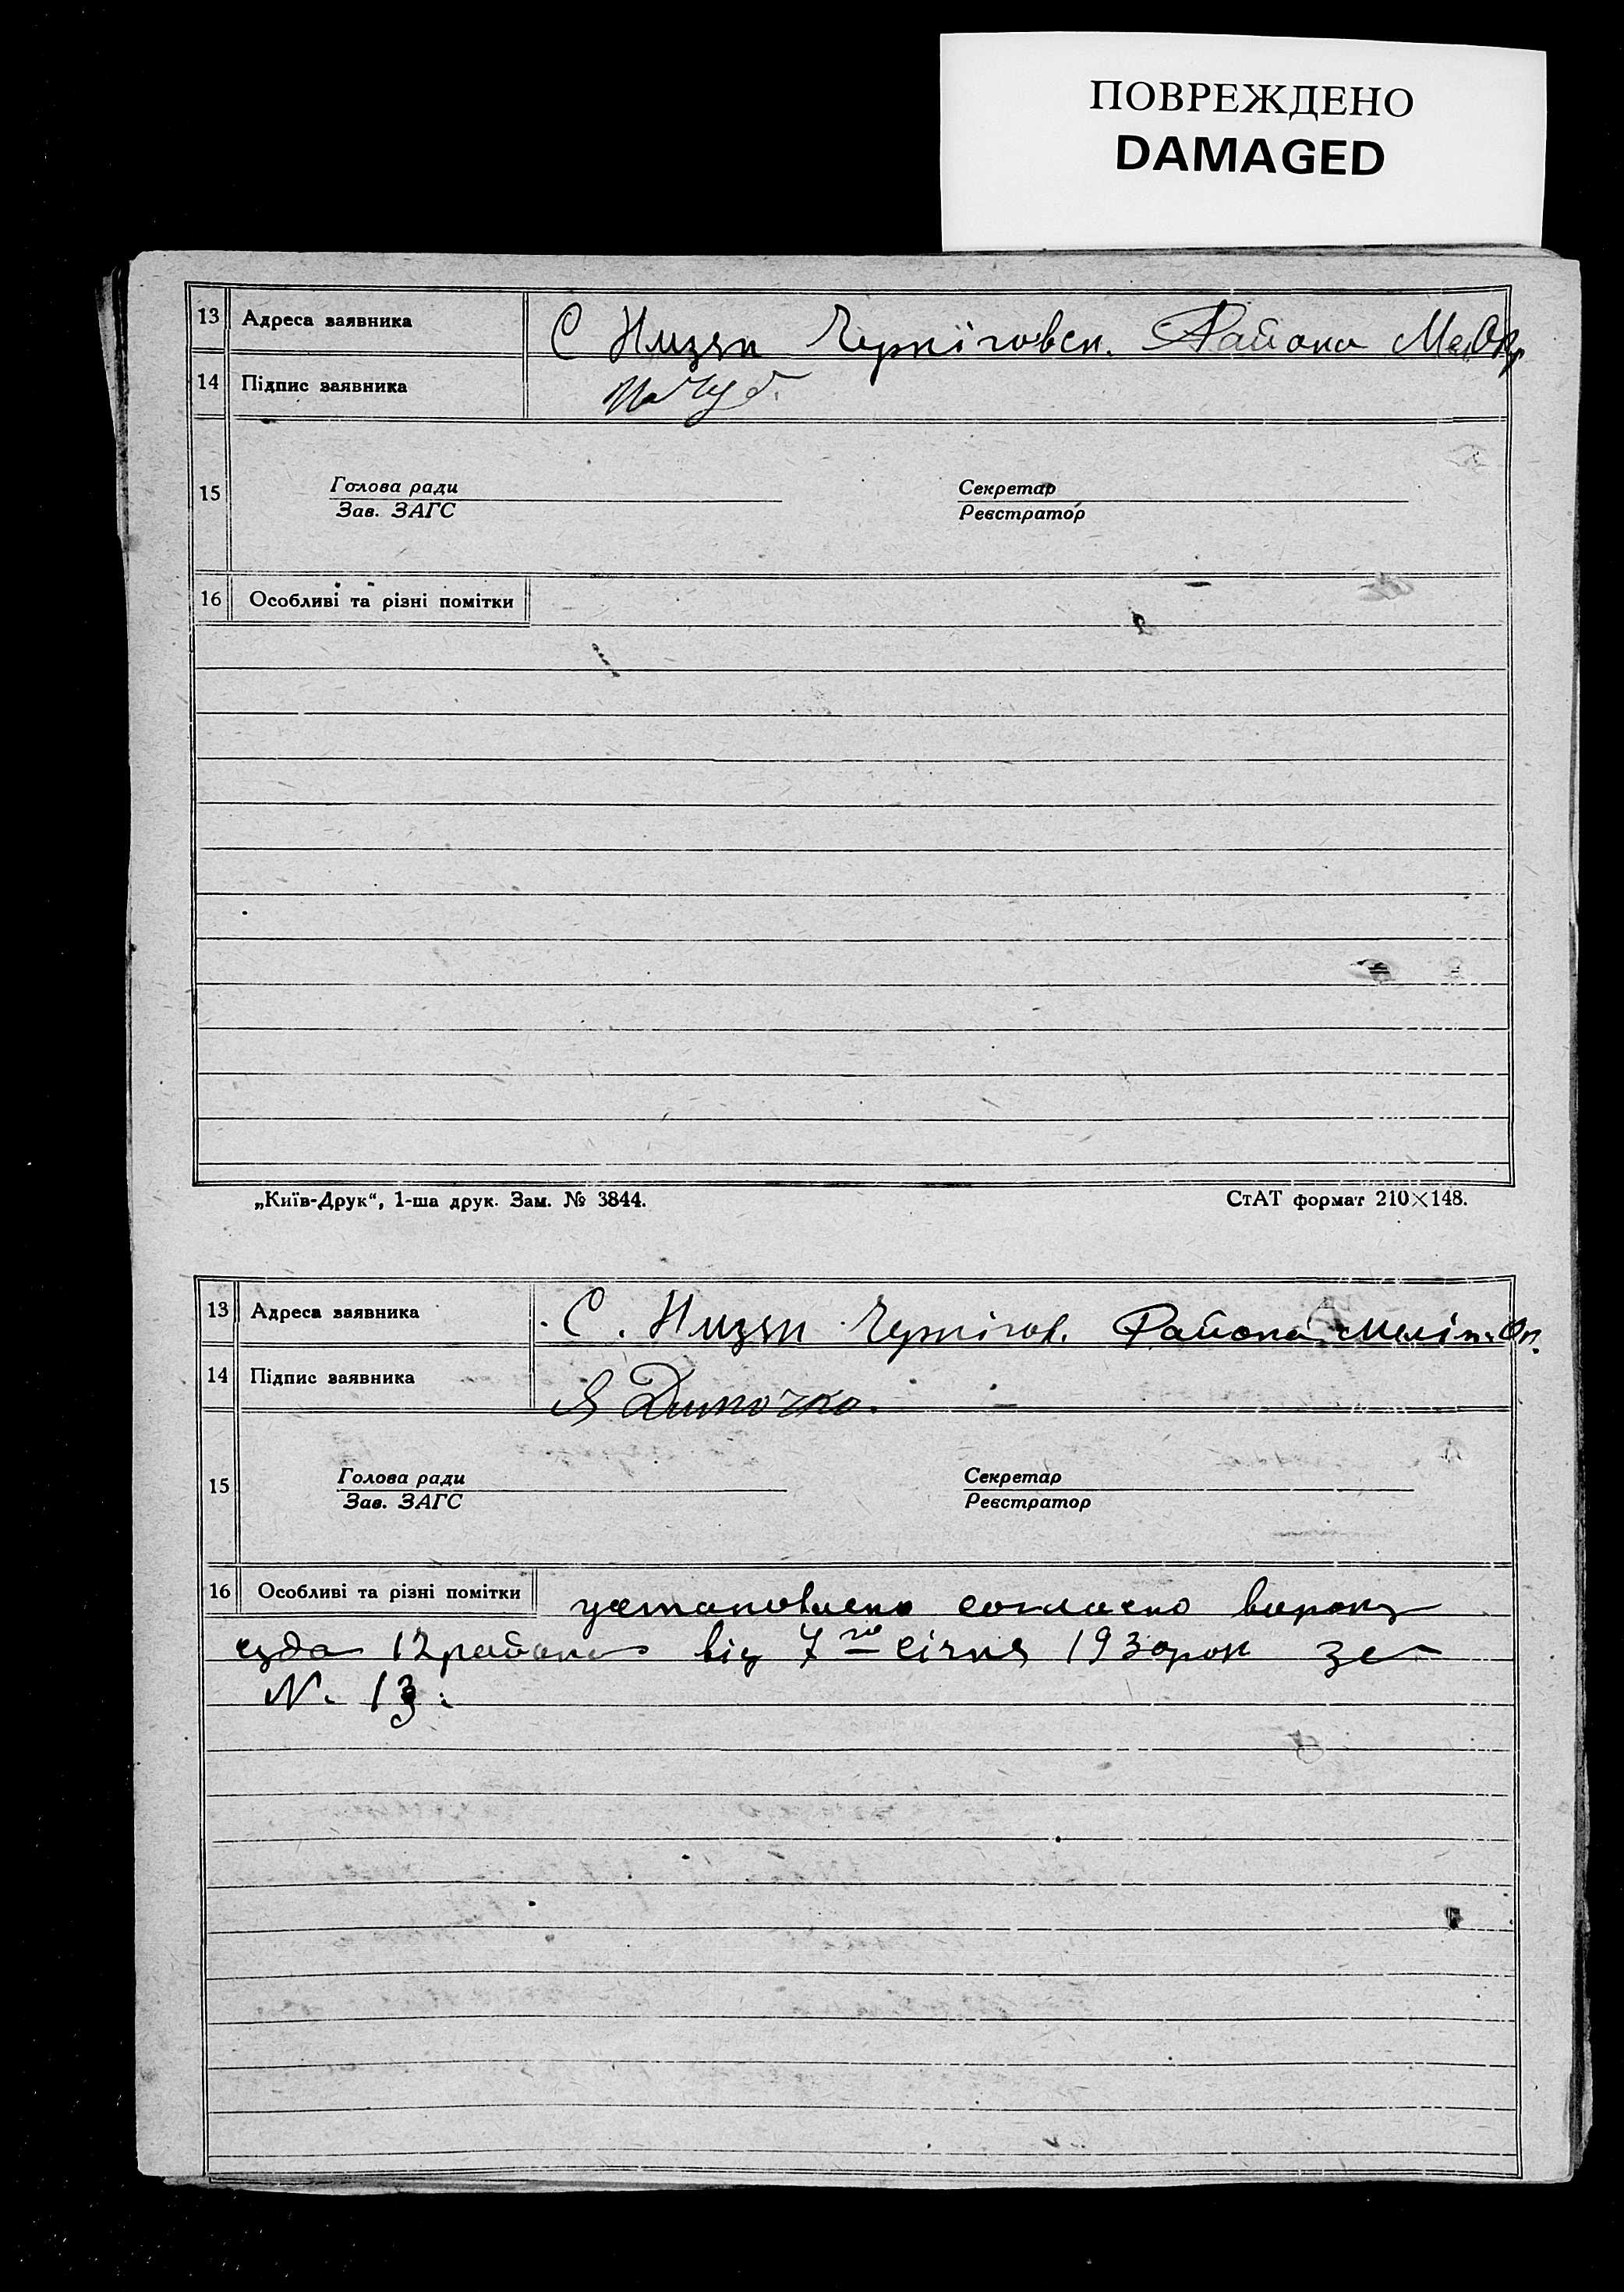 ПОВРЕЖДЕНО
DAMAGED
13 Адреса заявника С Низяни Чернiговск. Района Мел Окр
14 Підпис заявника
15 Голова ради Секретар
Зав. ЗАГС Реєстратор
16 Особливі та різні помітки
„Київ-Друк“, 1-ша друк. Зам. № 3844. СтАТ формат 210×148.
13 Адреса заявника С. Низяни Чернiгов. Района Мелiт. Ок.
14 Підпис заявника
15 Голова ради Секретар
Зав. ЗАГС Реєстратор
16 Особливі та різні помітки установлено согласно вироку
суда 12 района від 7го січня 1930 рок за
N. 13.